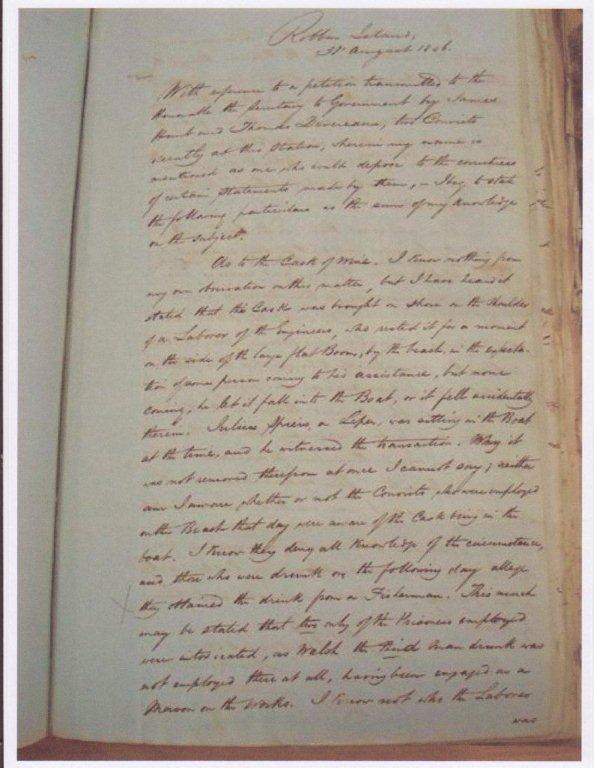 Robben Island,
31st August 1846.
With reference to a petition transmitted to the
Honorable the Secretary to Government by James
Hunt and Thomas Devereaux, two Convicts
recently at this Station, wherein my name is
mentioned as one who could depose to the correctness
of certain statements made by them, – I beg to state
the following particulars as the sum of my knowledge
on the subject.
As to the Cask of Wine. I know nothing from
my own observation on this matter, but I have heard it
stated that the Cask was brought on shore on the shoulder
of a Laborer of the Engineers, who rested it for a moment
on the side of the large flat Boom, by the beach, in the expecta-
tion of some person coming to his assistance, but none
coming, he let it fall into the Boat, or it fell accidentally
therein. Julius a Leper, was sitting in the Boat
at the time, and he witnessed the transaction. Why it
was not removed therefrom at once I cannot say; neither
am I aware whether or not the Convicts who were employed
on the Beach that day were aware of the Cask being in the
boat. I know they deny all knowledge of the circumstance,
and those who were drunk on the following day allege
they obtained the drink from a Fisherman. This much
may be stated that two only of the Prisoners employed
were intoxicated, as Walsh the third man drunk was
not employed there at all, having been engaged as a
Mason on the works. I know not who the Laborer
was